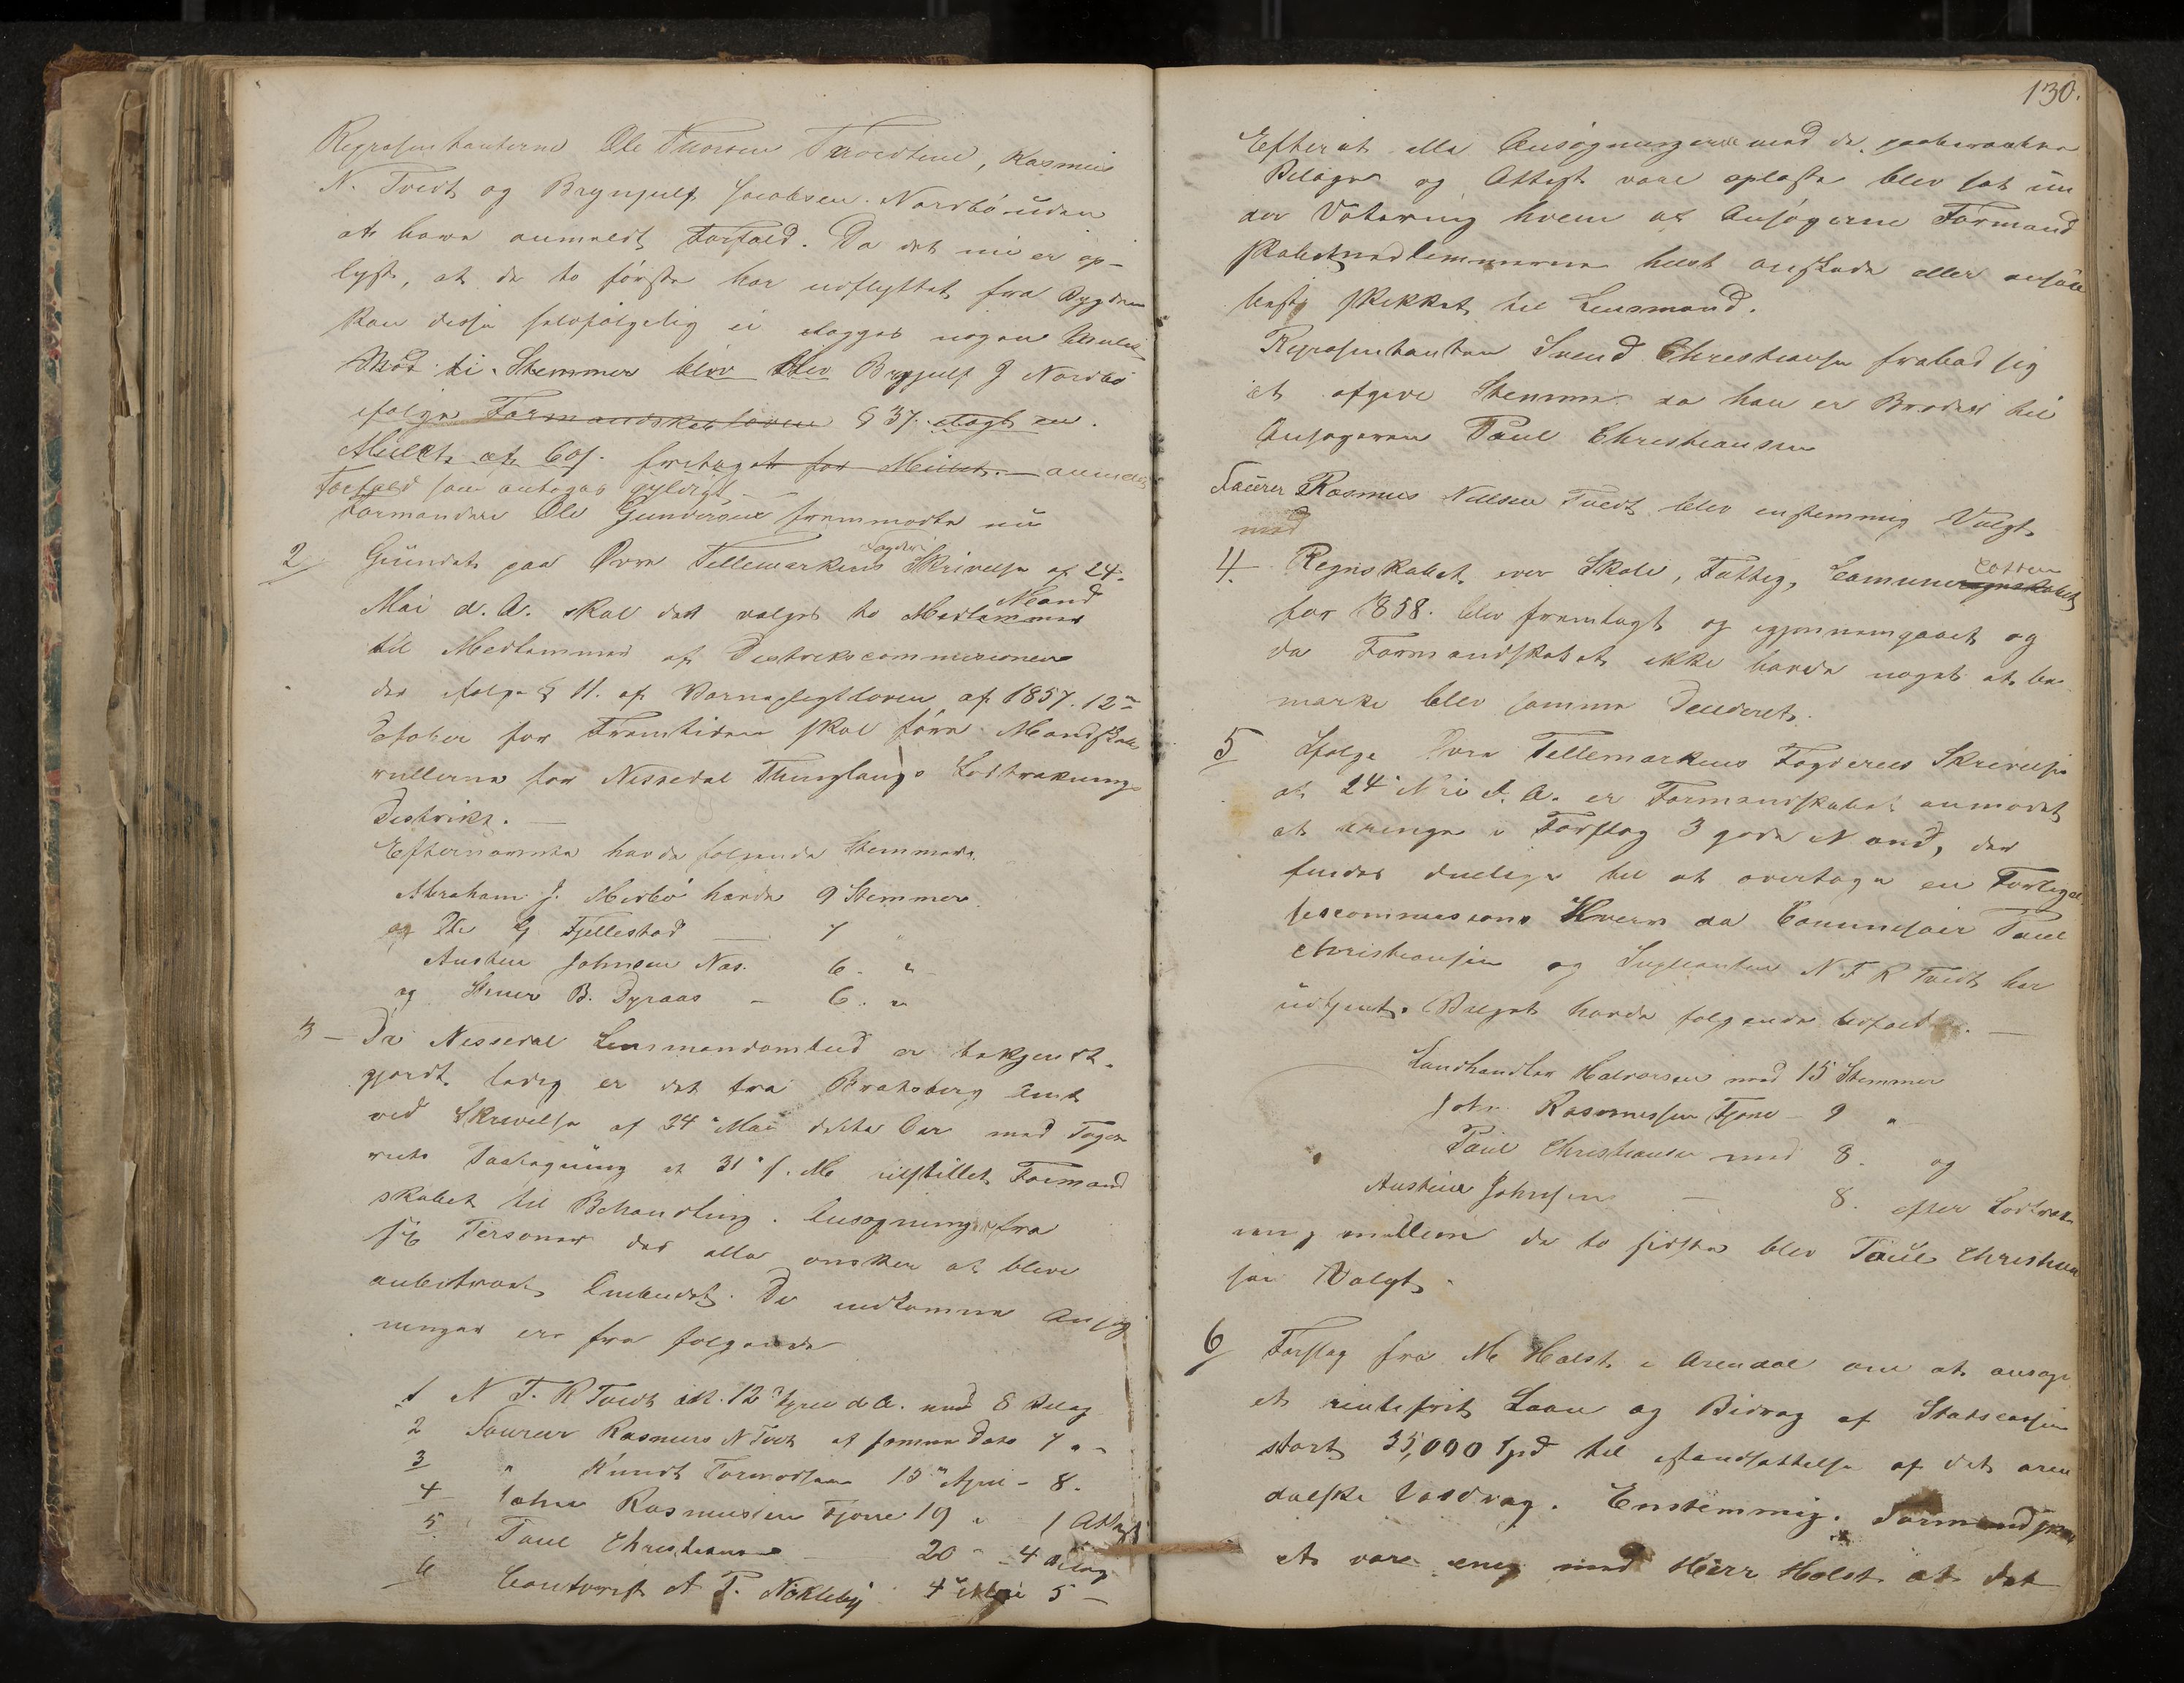 Repræsentanterne Ole Thorsen Traedtene, Rasmus
N. Tvedt og Brynjulf Jacobsen Nordbö uden
at have anmeldt Forfald. Da det nu er op-
lyst, at de to förste har udflyttet fra Bygden
kan disse selvfölgelig ei ilægges nogen Mulct
Mod ti Stemmer blev blev Brynjulf J Nordbö
ifölge Formandskabsloven § 37. ilagt en
Mulct af 60 s. fritaget for Mulct. — anmeldt
Forfald som antages gyldigt
Formanden Ole Gundersen fremmödte nu
2/ Grundet paa Övre Tellemarkens Fogderi Skrivelse af 24.
Mai d. A. skal det vælges to Medlemmer Mænd
til Medlemmer af Distrikscommisionen
der ifölge § 11. af Værnepligtloven af 1857. 12te
October for Fremtiden skal före Mandskabs
rullerne for Nissedal Thinglaugs Lodtrækning
Distrikt. —
Efternævnte havde fölgende Stemmer.
Abraham J. Midbö havde 9 Stemmer.
og Ole G Fjellestad — 7 "
Austen Johnsen Næs. 6. "
og Stener B. Dyraas — 6. "
3 — Da Nissedal Lensmandsombud er bekjendt-
gjordt ledig er det fra Bratsberg Amt
ved Skrivelse af 24 Mai dette Aar med Foge-
riets Paategning at 31 s. M. tilstillet Formand
skabet til Behandling. Ansögninger fra
sex Personer der alle önsker at blive
anbetroet Ombudet. De indkomne Ansög
ninger ere fra fölgende
1 N T. R Tvedt dat. 12 April d A. med 8 Bilag
2 Saurer Rasmus N Tvedt af samme Dato 7 " "
3 " Knudt Tormodsen 15 April – 8.
4 John Rasmussen Fjone 19 " 1 Attest
5 Paul Christiansen — 20 " 4 Bilag
6 Contorist A P. Nökleby 4 Mai 5 —
130.
Efterat alle Ansögningerne med de paaberaabte
Bilage og Attest vare oplæste blev sat un
der Votering hvem af Ansögerne Formand
skabetsmedlemmerne helst önskede eller ansaae
best skikket til Lensmand.
Repræsentanten Svend Christiansen frabad sig
at afgive Stemme da han er Broder til
Ansögeren Paul Christiansen
Saurer Rasmus Nilsen Tvedt blev enstemmig Valgt,
med
4. Regnskabet over Skole, Fattig, Comuneregnskabet Cassen
for 1858. blev fremlagt og igjennemgaaet og
da Formandskabet ikke havde noget at be
mærke blev samme Decideret.
5 Ifölge Övre Tellemarkens Fogderies Skrivelse
af 24 Mai d. A. er Formandskabet anmodet
at bringe i Forslag 3 gode Mænd, der
findes duelige til at overtage en Forligel
sescommissions Hverv da Commisair Paul
Christiansen og Supleanten N T R Tvedt har
udtjent. Valget havde fölgende Udfald. —
Landhandler Halvorsen med 15 Stemmer
John Rasmussen Fjone – 9 "
Paul Christiansen med 8. og
Austen Johnsen — 8. efter Lodtræk
ning mellem de to sidste blev Paul Christian
sen Valgt.
6/ Forslag fra M Holst i Arendal om at ansöge
et rentefrit Laan og Bidrag af Statscassen
stort 35,000 Spd til istandsættelse af det aren
dalske Vasdrag. Enstemmig. Formandskab
et vare enig med Herr Holst at det